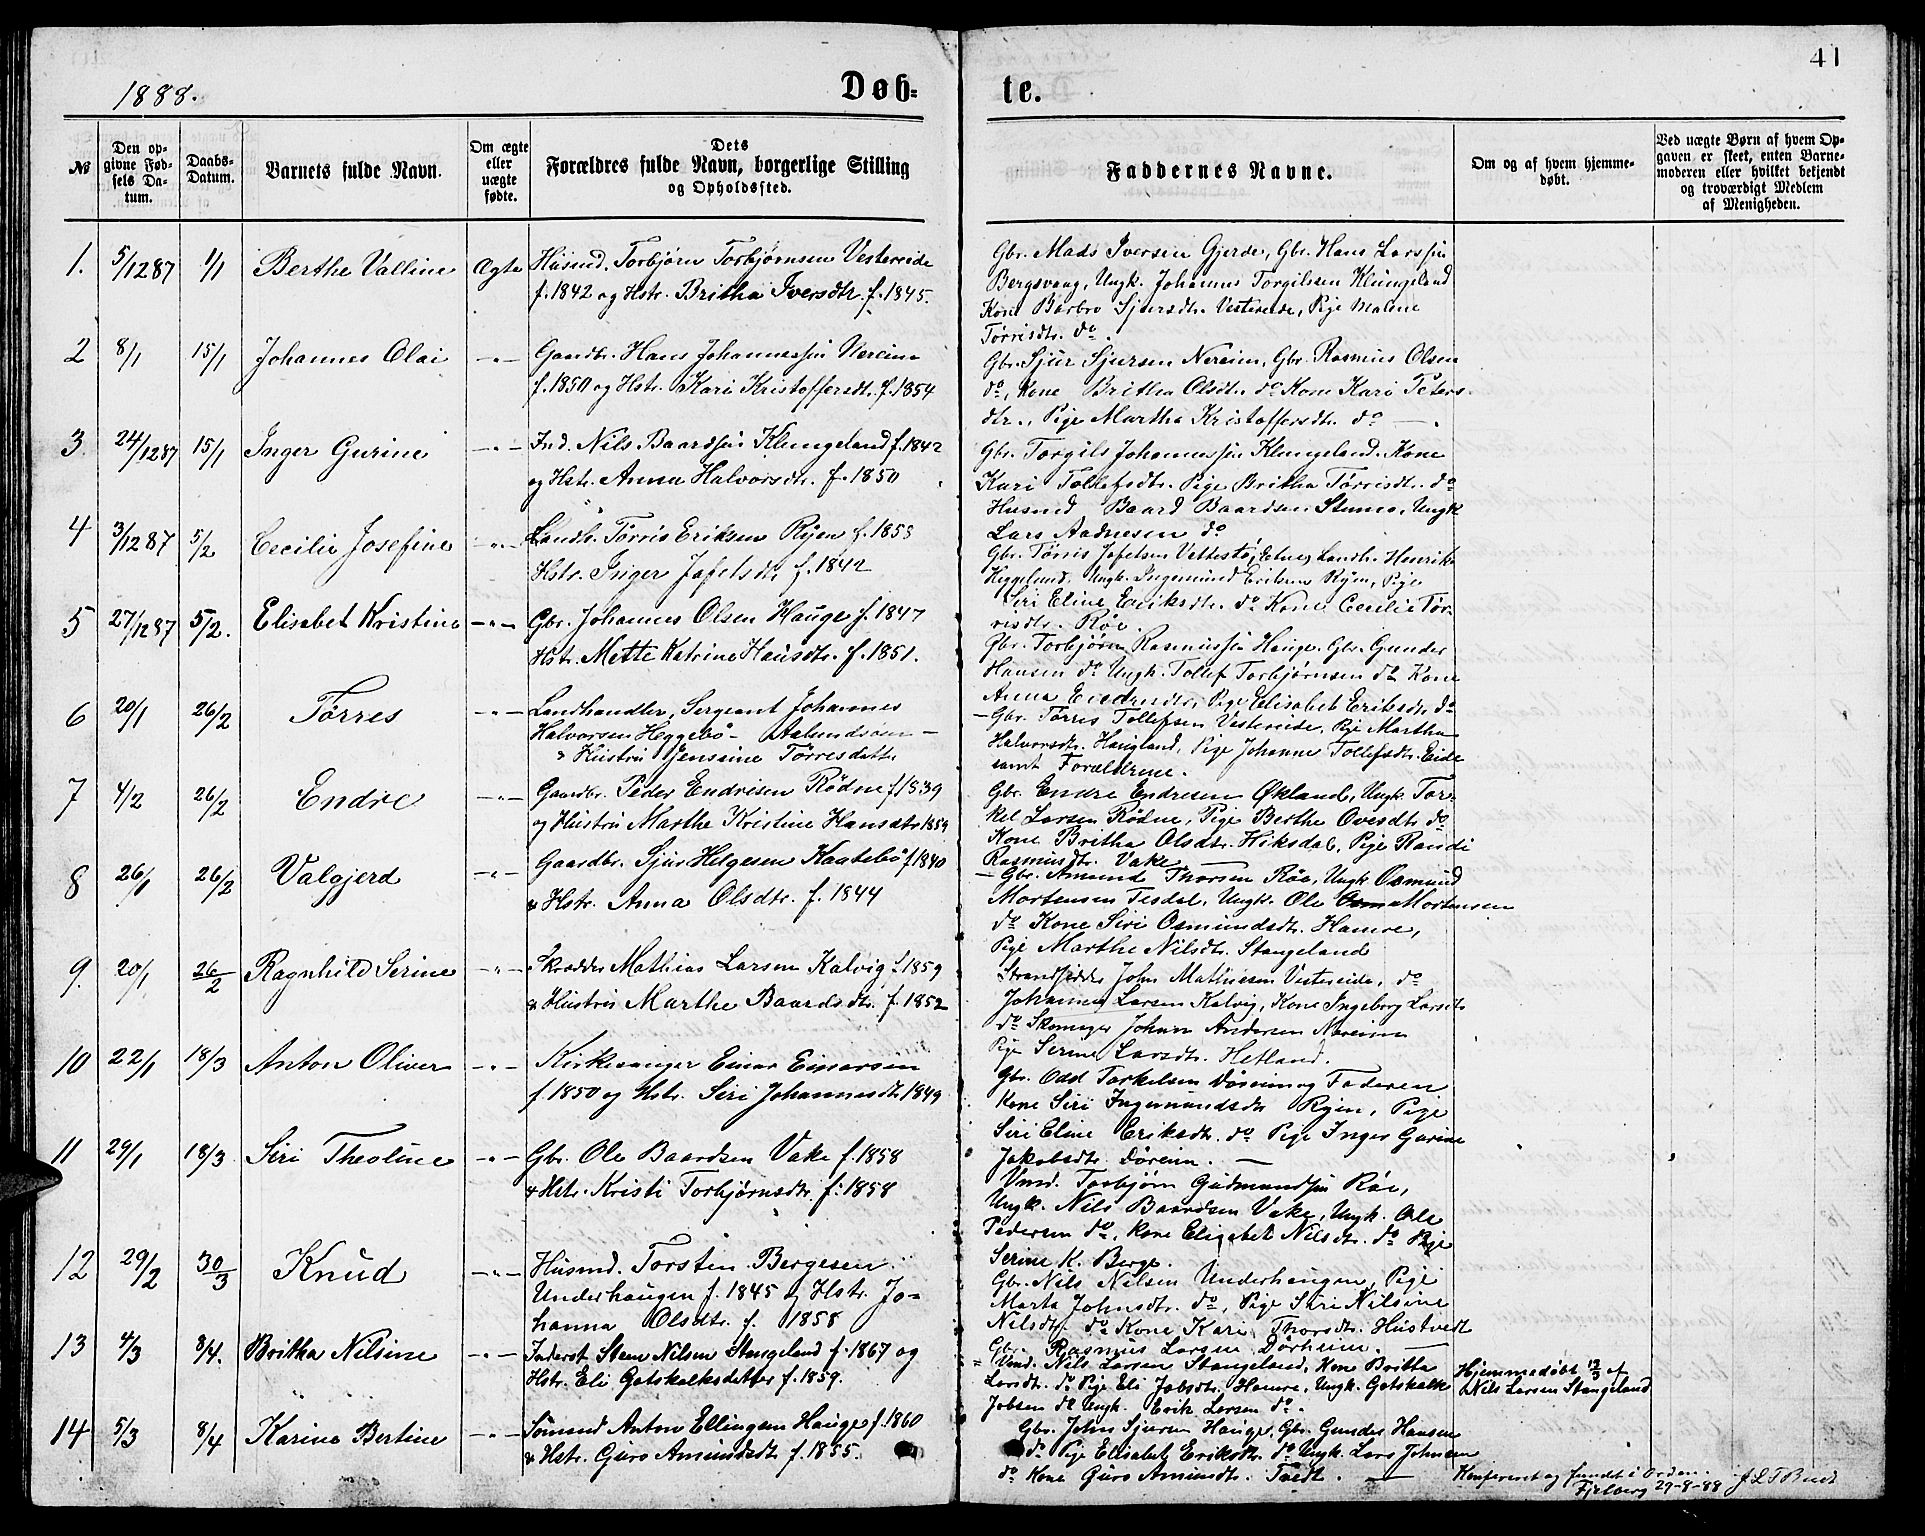 41
1888.
Døb-
te.
№
Den op-
givne Fød-
sels Da-
tum.
Daabs-
Datum.
Barnets fulde Navn.
Om ægte
eller
uægte
fødte.
Dets
Forældres fulde Navn, borgerlige Stilling
og Opholdssted.
Faddernes Navne.
Om og af hvem hjemme-
døbt.
Ved uægte Børn af hvem Op-
gaven er skeet, enten Barne-
moderen eller hvilket bekjendt
og troværdigt Medlem
af Menigheden.
1. 5/12 87 1/1 Berthe Valline Ægte Husmd. Torbjørn Torbjørnsen Vestereide
f. 1842 og Hstr. Britha Iversdtr. f. 1845.
Gbr. Mads Iversen Gjerde, Gbr. Hans Larssen
Bergsvaag, Ungk. Johannes Torgilssen Klungeland
Kone Barbro Sjursdtr. Vestereide, Pige Malene
Tørrisdtr. do.
2 8/1 15/1 Johannes Olai -"- Gaardbr. Hans Johannessen Nereim
f. 1850 og Hstr. Kari Kristoffersdtr. f. 1854
Gbr. Sjur Sjursen Nereim, Gbr. Rasmus Olsen
do, Kone Britha Olsdtr. do Kone Kari Peters-
dtr., Pige Martha Kristoffersdtr. do
3. 24/12 87 15/1 Inger Gurine -"- Ind. Nils Baardsen Klungeland f. 1842
og Hstr. Anna Halvorsdtr. f. 1850
Gbr. Torgils Johannessen Klungeland. Kone
Kari Tollefsdtr. Pige Britha Tørrisdtr. do
Husmd Baard Baardsen Stumo, Ungk
Lars Aadnesen do
4 3/12 87 5/2 Cecilie Josefine -"- Landh. Tørris Eriksen Ryen f. 1855
Hstr. Inger Jafetsdtr. f. 1842
Gbr. Tørris Jafetsen Vettestø, Etne, Landh. Henrik
Heggelund, Ungk. Ingemund Eriksen Ryen, Pige
Siri Eline Eriksdtr. do Kone Cecilie Tør-
risdtr. Røe.
5 27/12 87 5/2. Elisabet Kristine -"- Gbr. Johannes Olsen Hauge f. 1847
Hstr. Mette Katrine Hansdtr. f. 1851.
Gbr. Torbjørn Rasmussen Hauge. Gbr. Gunder
Hansen do Ungk. Tollef Torbjørnsen do Kone
Anna Endresdtr, Pige Elisabet Eriksdtr do
6 20/1 26/2 Tørres -"- Landhandler, Sergeant Johannes
Halvorsen Heggebø - Aalundsøen -
& Hustru Jensine Tørresdatter
- Gbr. Tørris Tollefsen Vestereide, Pige Martha
Halvorsdtr. Haugland, Pige Johanne Tollefsdtr. Eide
samt Forældrene.
7 4/2 26/2 Endre -"- Gaardbr. Peder Endresen Rødne f. 1839
og Hustru Marthe Kristine Hansdtr 1859
Gbr. Endre Endresen Økland, Ungk. Tor-
kel Larsen Rødne, Pige Berthe Ovesdtr do
Kone Britha Olsdtr. Hiksdal, Pige Randi
Rasmusdtr. Vake
8 26/1 26/2 Valgjerd -"- Gaardbr. Sjur Helgesen Kaatebø f. 1840
& Hstr. Anna Olsdtr. f. 1844
- Gbr. Amund Thorsen Røe, Ungk Osmund
Mortensen Tesdal, Ungk. Ole Mortensen
do Kone Siri Osmundsdtr. Hamre,
Pige Marthe Nilsdtr. Stangeland
9. 20/1 26/2 Ragnhild Serine -"- Skrædder Mathias Larsen Kalvig f. 1859
& Hustru Marthe Baardsdtr. f. 1852
Strandsidder John Mathiesen Vestereide, do
Johannes Larsen Kalvig, Kone Ingeborg Larsdtr
do Skomager Johan Andersen Nereim
Pige Serine Larsdtr. Hetland.
10 22/1 18/3 Anton Oliver -"- Kirkesanger Einar Einarsen
f. 1850 og Hstr. Siri Johannesdtr 1849
Gbr. Odd Torkelsen Døreim og Faderen
Kone Siri Ingemundsdtr Ryen, Pige
Siri Eline Eriksdtr. do Pige Inger Gurine
Jakobsdtr. Døreim.
11 29/1 18/3 Siri Theoline -"- Gbr. Ole Baardsen Vake f. 1858
& Hstr. Kristi Torbjørnsdtr. f. 1858
Vmd. Torbjørn Gudmundsen Røe,
Ungk. Nils Baardsen Vake, Ungk. Ole
Pedersen do, Kone Elisabet Nilsdtr. do Pige
Serine K. Berge.
12 29/2 30/3 Knud -"- Husmd. Torsten Bergesen
Underhaugen f. 1845 og Hstr. Jo-
hanna Olsdtr. f. 1858
Gbr. Nils Nilsen Underhaugen, Pige
Marta Johnsdtr. do, Pige Siri Nilsine
Nilsdtr. do Kone Kari Thorsdtr. Hustvedt
Gbr. Rasmus Larsen Dörheim.
13 4/3 8/4. Britha Nilsine -"- Inderst Steen Nilsen Stangeland f. 1867 og
Hstr. Eli Gotskalksdatter f. 1859.
Vmd. Nils Larsen Stangeland, Kone Britta
Larsdt. do Pige Eli Jobsdtr. Hamre, Ungk. Gotskalk
Jobsen do Ungk. Erik Larsen do.
Hjemmedøbt 12/3 af
Nils Larsen Stangeland
14 5/3 8/4 Karine Bertine -"- Sömand Anton Ellingsen Hauge f. 1860
& Hstr. Guro Amundsdt f. 1855.
Gbr. John Sjursen Hauge, Gbr. Gunder Hansen
do Pige Elisabet Eriksdtr. do Ungk. Lars Johnsen
do Kone Guro Amundtr. Tvedt.
Konfereret og fundet i Orden.
Fjelberg 29-8-88 J L T Buch